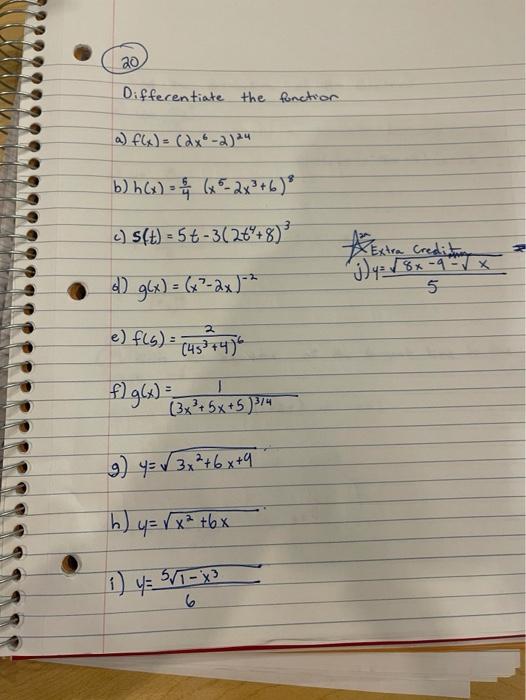 20
Differentiate the function
a) f(x) = (2x⁶-2)²⁴
b) h(x) = 5/4 (x⁵-2x³+6)⁸
c) s(t) = 5t - 3(2t⁴+8)³
d) g(x) = (x⁷-2x)⁻²
e) f(s) = 2/(4s³+4)⁶
f) g(x) = 1/(3x³+5x+5)³/⁴
g) y = √3x²+6x+9
h) y = √x²+6x
i) y = 5√1-x³/6
Extra Credit
j) y = √8x-9-√x/5